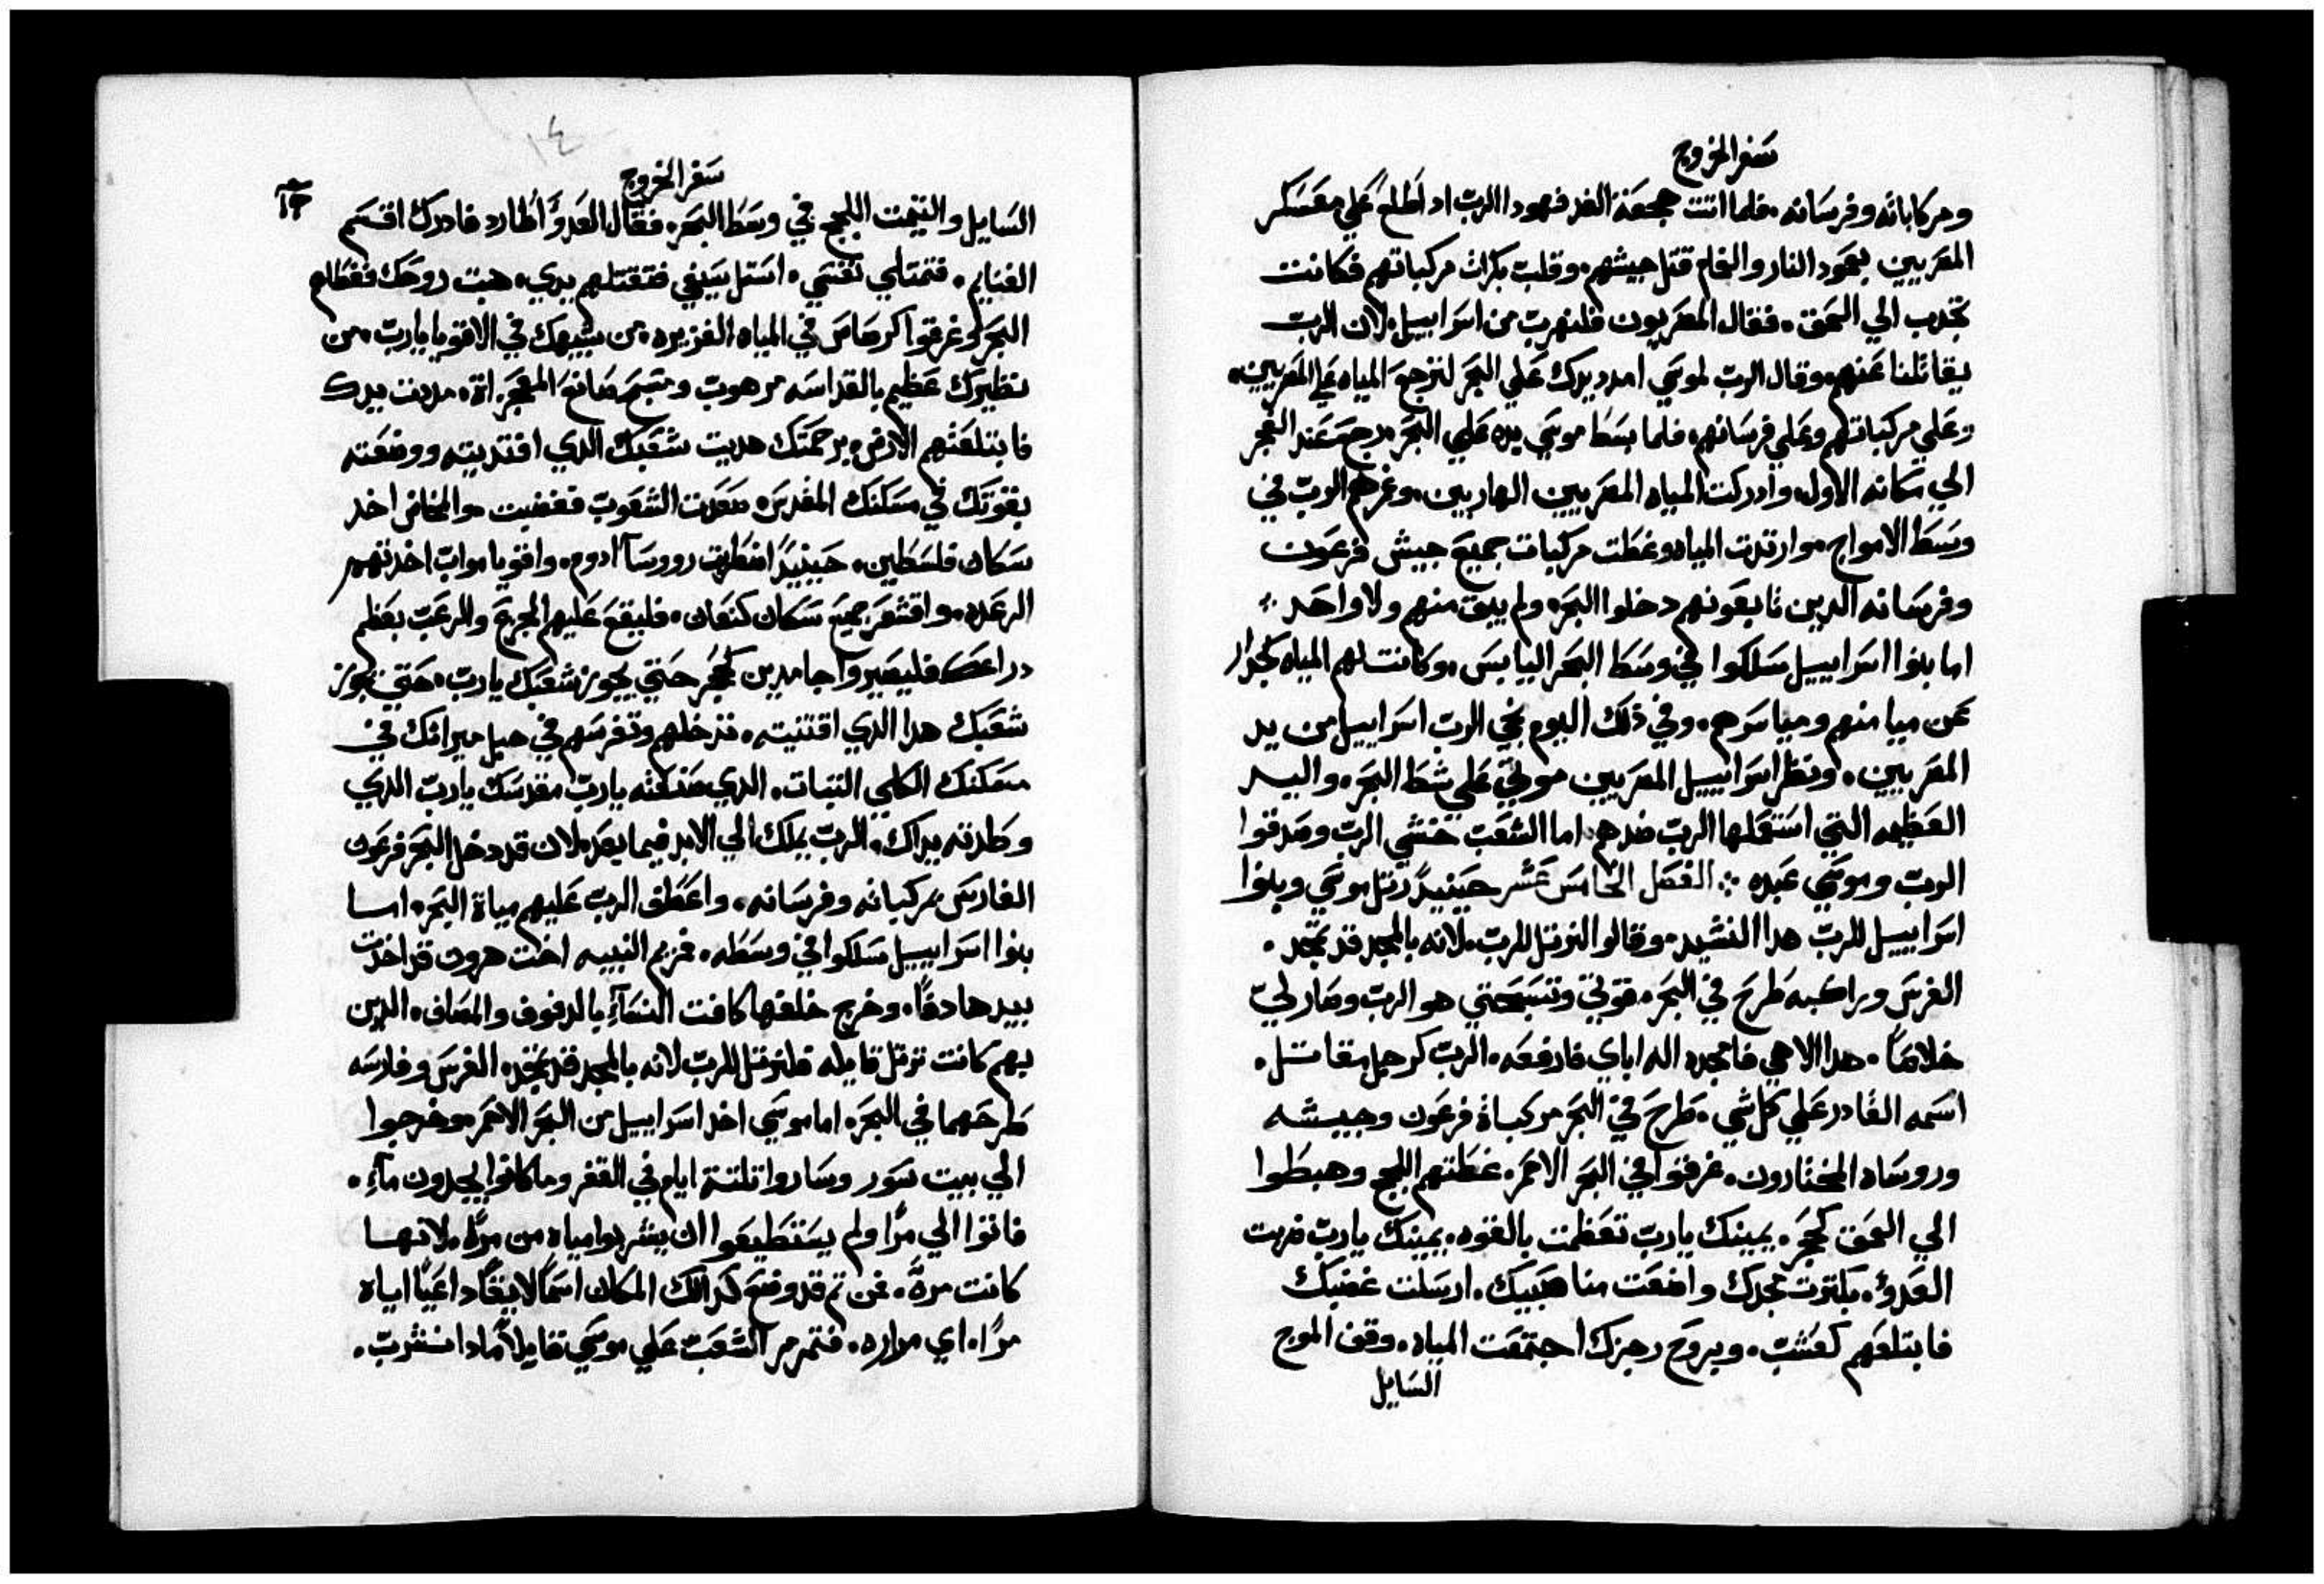 سفر الخروج
ومركاباته وفرسانه. فلما اتت هجعة الغد فهودا الرب اد اطلع علي معسكر
المصريين بعمود النار والغمام قتل جيشهم. وقلب بكرات مركباتهم فكانت
تجدب الي العمق. فقال المصريون فلنهرب من اسراييل. لان الرب
يقاتلنا عنهم. وقال الرب لموسي امدد يدك علي البحر لترجع المياه علي المصريين.
وعلي مركباتهم وعلي فرسانهم. فلما بسط موسي يده علي البحر. رجع عند الفجر
الي مكانه الاول. وادركت المياه المصريين الهاربين. وغرهم الرب في
وسط الامواج. وارتدت المياه وغطت مركبات جميع جيش فرعون
وفرسانه الدين تابعونهم دخلوا البحر. ولم يبق منهم ولا واحد
اما بنوا اسراييل سلكوا في وسط البحر اليابس. وكانت لهم المياه كجدار
عن ميامنهم ومياسرهم. وفي ذلك اليوم نجي الرب اسراييل من يد
المصريين. ونظر اسراييل المصريين موتي علي شط البحر. واليد
العظيمه التي استعملها الرب ضدهم. اما الشعب خشي الرب وصدقوا
الرب وموسي عبده الفصل الخامس عشر حينيدٍ رتل موسي وبنوا
اسراييل للرب هدا النشيد. وقالوا لنرتل للرب. لانه بالمجد قد تمجد.
الفرس وراكبه طرح في البحر. قوتي وتسبحتي هو الرب وصار لي
خلاصًا. هدا الاهي فامجده اله اباي فارفعه. الرب كرجل مقاتل.
اسمه القادر علي كل شي. طرح في البحر مركباة فرعون وجيشه
وروساه المختارون. غرقوا في البحر الاحمر. غطتهم اللجج وهبطوا
الي العمق كحجر. يمينك يارب تعظمت بالقوه. يمينك يارب ضربت
العدو. بكثرت مجدك واضعت مناهبيك. ارسلت غضبك
فابتلعهم كعشب. وبروح رجزك اجتمعت المياه. وقف الموج
السايل
١٤
سفر الخروج
السايل والتيمت اللجج في وسط البحر. فقال العدو اطارد فادرك اقسم
الغنايم. فتمتلي نفسي. استل سيفي فتقتلهم يدي. هبت روحك فغطاهم
البحر وغرقوا كرصاص في المياه الغزيره. من يشبهك في الاقويا يارب. من
نظيرك عظيم بالقداسه مرهوب ومسبح صانع المعجزاة. مددت يدك
فابتلعتهم الارض. برحمتك هديت شعبك الدي افتديته ووضعته
بقوتك في مسكنك المقدس. صعدت الشعوب فغضبت. والمخاض اخد
سكان فلسطين. حينيدٍ اضطربت رووسآ ادوم. واقويا مواب اخدتهم
الرعده. واقشعر جميع سكان كنعان. فليقع عليهم الجزع والرعب بعظم
دراعك فليصيروا جامدين كحجر حتي يجوز شعبك يارب. حتي يجوز
شعبك هدا الدي اقتنيته. تدخلهم وتغرسهم في جبل ميراتك في
مسكنك الكلي التبات. الدي صنعته يارب مقدسك يارب الدي
وطدته يداك. الرب يملك الي الابد فيما بعد. لان قد دخل البحر فرعون
الفارس بمركباته وفرسانه. واعطف الرب عليهم مياة البحر. اما
بنوا اسراييل سلكوا في وسطه. فمريم النبيه اخت هرون قد اخدت
بيدها دفًا. وخرج خلفها كافت النسآءِ بالدفوف والمصاف. الدين
بهم كانت ترتل قايله فلنرتل للرب لانه بالمجد قد تمجد. الفرس وفارسه
طرحهما في البحر. اما موسي اخد اسراييل من البحر الاحمر. وخرجوا
الي بيت سور وساروا تلتة ايام في القفر وما كانوا يجدون مآءِ.
فاتوا الي مرًا ولم يستطيعوا ان يشربوا مياة من مرًا. لانها
كانت مرةً. فمن تم قد وضع لدالك المكان اسمًا لايقًا داعيًا اياه
مرًا. اي مراره. فتمرمر الشعب علي موسي قايلاً مادا نشرب.